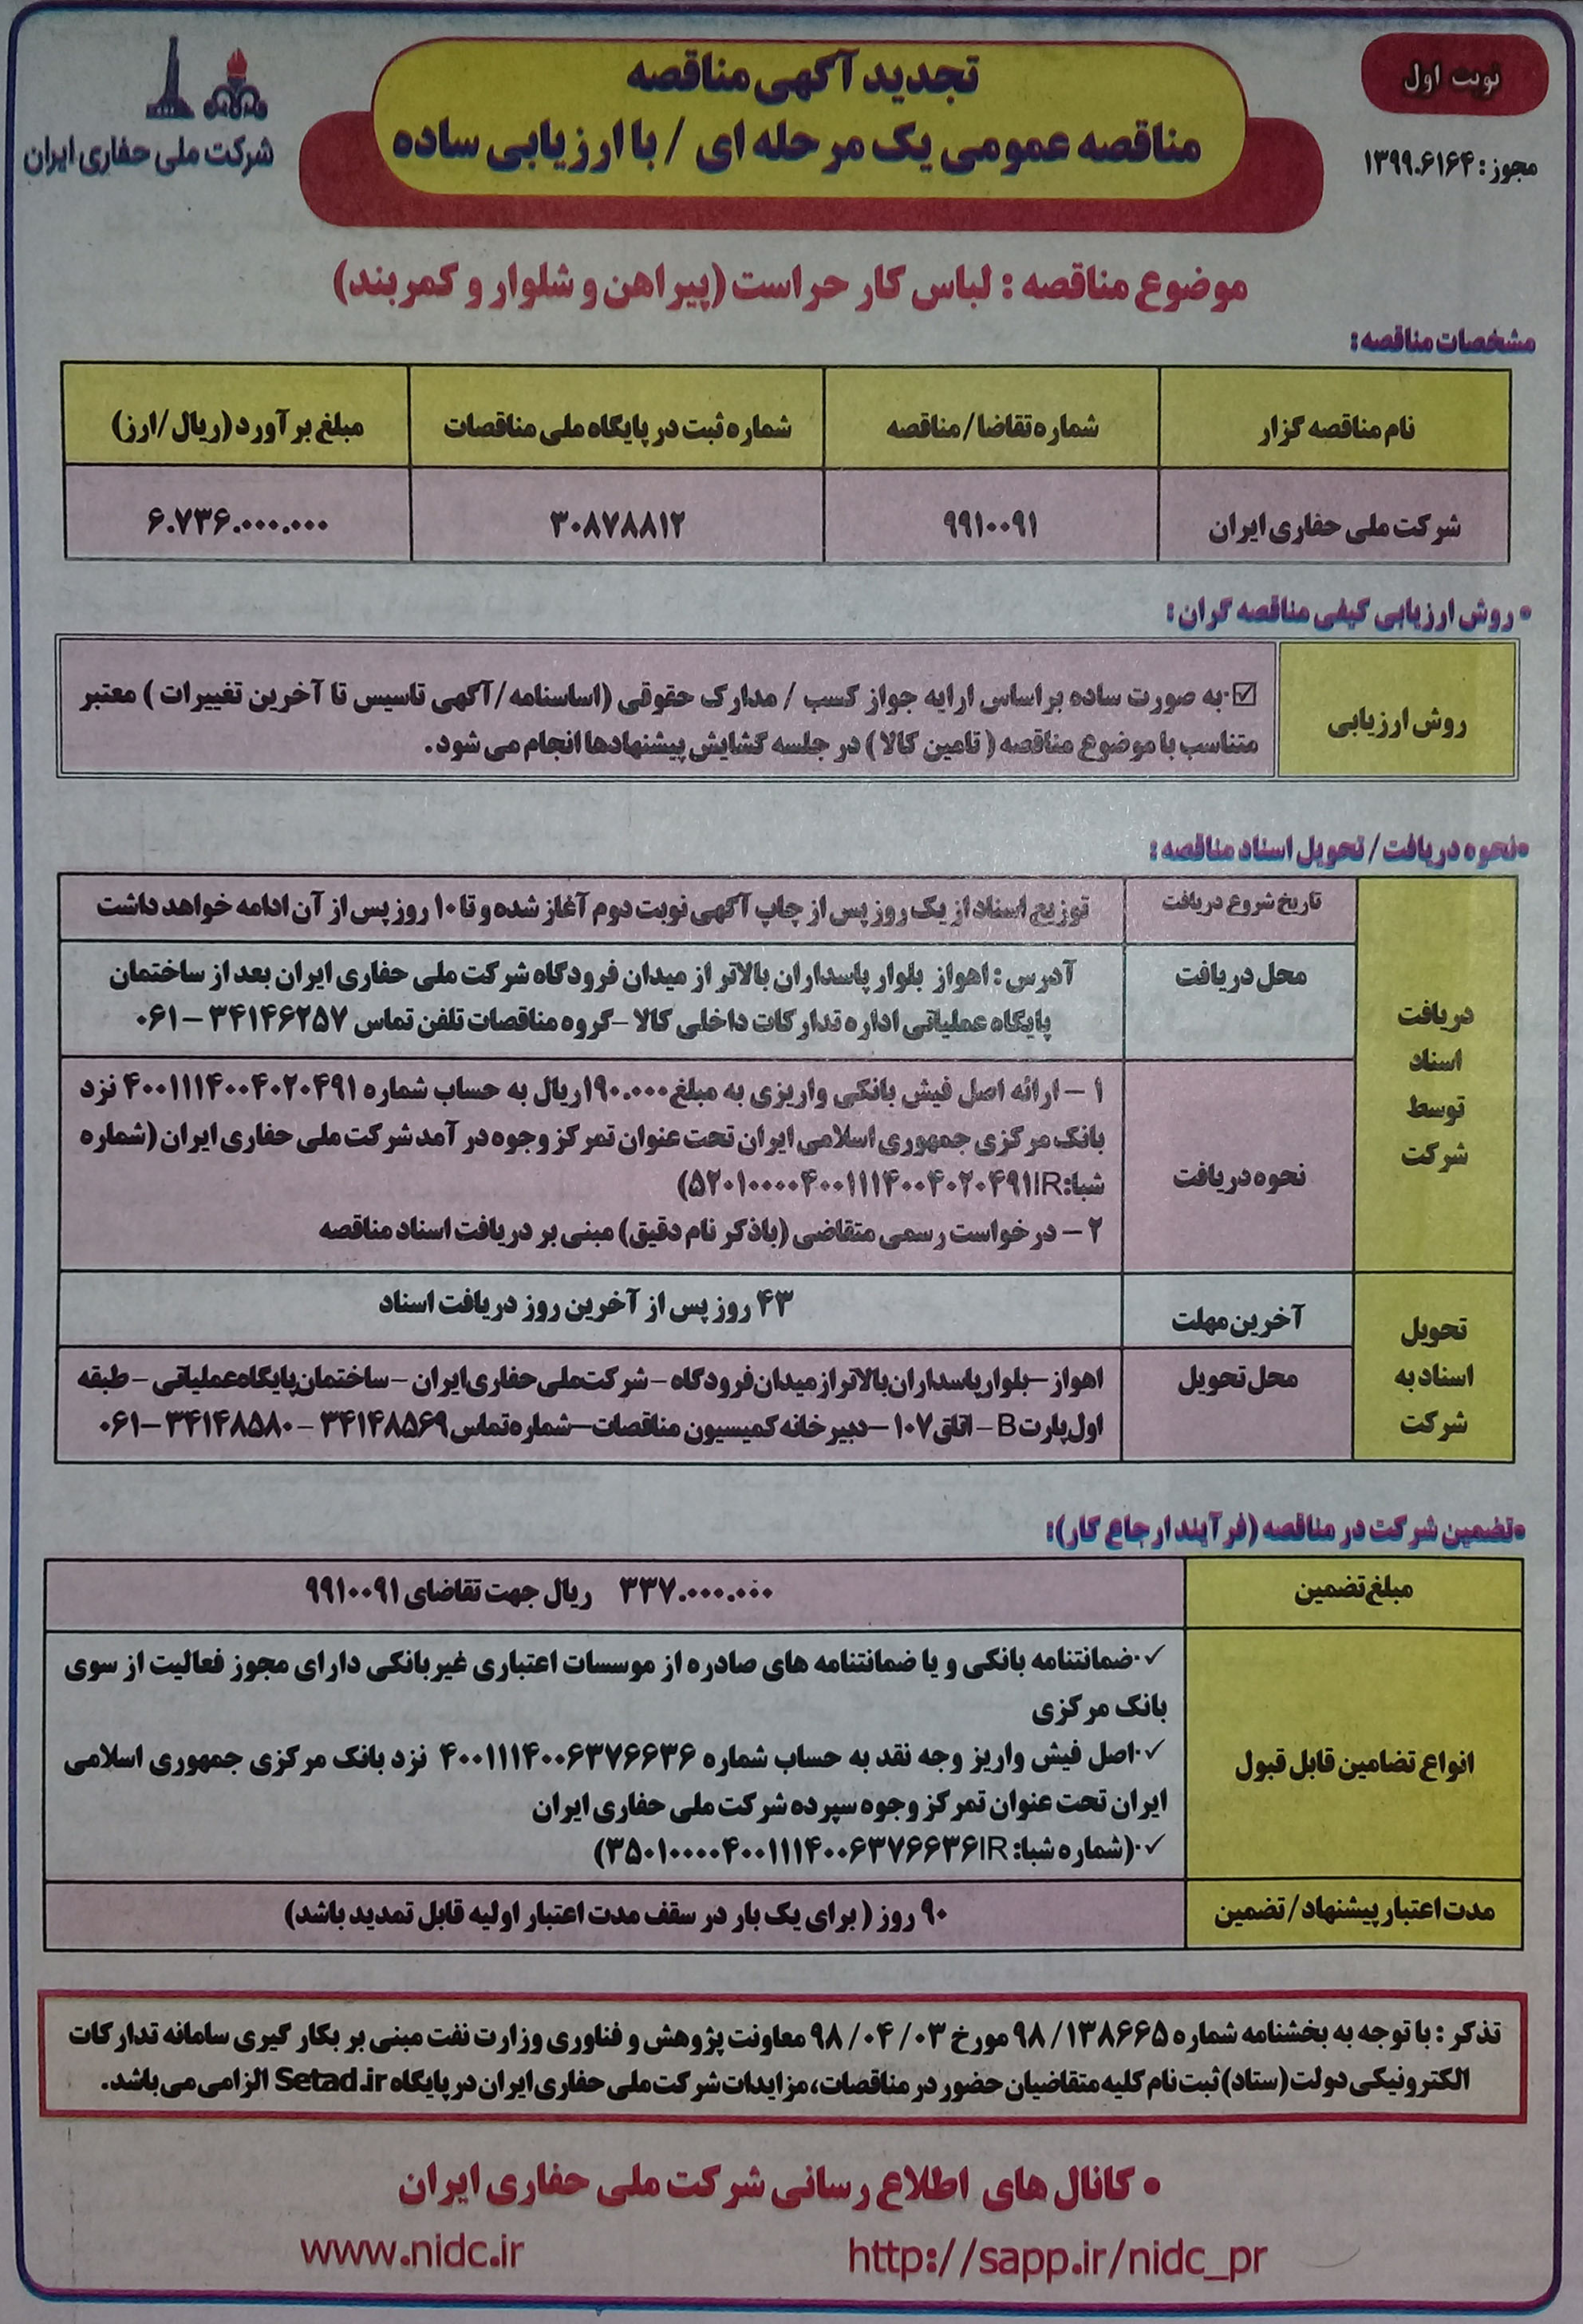 نوبت اول
مجوز: ۱۳۹۹.۶۱۶۴
تجدید آگهی مناقصه
مناقصه عمومی یک مرحله ای / با ارزیابی ساده
شرکت ملی حفاری ایران
موضوع مناقصه : لباس کار حراست (پیراهن و شلوار و کمربند)
مشخصات مناقصه:
نام مناقصه گزار
شماره تقاضا/مناقصه
شماره ثبت در پایگاه ملی مناقصات
مبلغ برآورد (ریال/ارز)
شرکت ملی حفاری ایران
۹۹۱۰۰۹۱
۳۰۸۷۸۸۱۲
۶.۷۳۶.۰۰۰.۰۰۰
• روش ارزیابی کیفی مناقصه گران:
روش ارزیابی
☑·به صورت ساده براساس ارایه جواز کسب / مدارک حقوقی (اساسنامه/آگهی تاسیس تا آخرین تغییرات ) معتبر
متناسب با موضوع مناقصه ( تامین کالا ) در جلسه گشایش پیشنهادها انجام می شود.
•نحوه دریافت/تحویل اسناد مناقصه:
دریافت
اسناد
توسط
شرکت
تاریخ شروع دریافت
توزیع اسناد از یک روز پس از چاپ آگهی نوبت دوم آغاز شده و تا ۱۰ روز پس از آن ادامه خواهد داشت
محل دریافت
آدرس : اهواز بلوار پاسداران بالاتر از میدان فرودگاه شرکت ملی حفاری ایران بعد از ساختمان
پایگاه عملیاتی اداره تدارکات داخلی کالا -گروه مناقصات تلفن تماس ۳۴۱۴۶۲۵۷ – ۰۶۱
نحوه دریافت
۱ – ارائه اصل فیش بانکی واریزی به مبلغ ۱۹۰.۰۰۰ریال به حساب شماره ۴۰۰۱۱۱۴۰۰۴۰۲۰۴۹۱ نزد
بانک مرکزی جمهوری اسلامی ایران تحت عنوان تمرکز وجوه درآمد شرکت ملی حفاری ایران (شماره
شبا:IR۵۲۰۱۰۰۰۰۴۰۰۱۱۱۴۰۰۴۰۲۰۴۹۱)
۲ – درخواست رسمی متقاضی (باذکر نام دقیق) مبنی بر دریافت اسناد مناقصه
تحویل
اسناد به
شرکت
آخرین مهلت
۴۳ روز پس از آخرین روز دریافت اسناد
محل تحویل
اهواز–بلوار پاسداران بالاتر از میدان فرودگاه – شرکت ملی حفاری ایران – ساختمان پایگاه عملیاتی – طبقه
اول پارت B – اتاق ۱۰۷ – دبیرخانه کمیسیون مناقصات–شماره تماس ۳۴۱۴۸۵۶۹ – ۳۴۱۴۸۵۸۰ –۰۶۱
•تضمین شرکت در مناقصه (فرآیند ارجاع کار):
مبلغ تضمین
۳۳۷.۰۰۰.۰۰۰ ریال جهت تقاضای ۹۹۱۰۰۹۱
انواع تضامین قابل قبول
✓·ضمانتنامه بانکی و یا ضمانتنامه های صادره از موسسات اعتباری غیربانکی دارای مجوز فعالیت از سوی
بانک مرکزی
✓·اصل فیش واریز وجه نقد به حساب شماره ۴۰۰۱۱۱۴۰۰۶۳۷۶۶۳۶ نزد بانک مرکزی جمهوری اسلامی
ایران تحت عنوان تمرکز وجوه سپرده شرکت ملی حفاری ایران
✓·(شماره شبا: IR۳۵۰۱۰۰۰۰۴۰۰۱۱۱۴۰۰۶۳۷۶۶۳۶)
مدت اعتبار پیشنهاد/تضمین
۹۰ روز ( برای یک بار در سقف مدت اعتبار اولیه قابل تمدید باشد)
تذکر : با توجه به بخشنامه شماره ۹۸/۱۳۸۶۶۵ مورخ ۹۸/۰۴/۰۳ معاونت پژوهش و فناوری وزارت نفت مبنی بر بکار گیری سامانه تدارکات
الکترونیکی دولت (ستاد) ثبت نام کلیه متقاضیان حضور در مناقصات، مزایدات شرکت ملی حفاری ایران در پایگاه Setad.ir الزامی می باشد.
• کانال های اطلاع رسانی شرکت ملی حفاری ایران
www.nidc.ir http://sapp.ir/nidc_pr